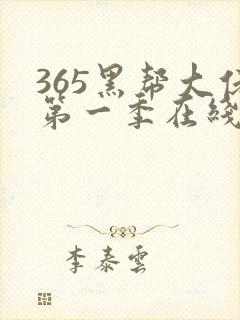 365黑帮大佬
第一季在线
李泰雲